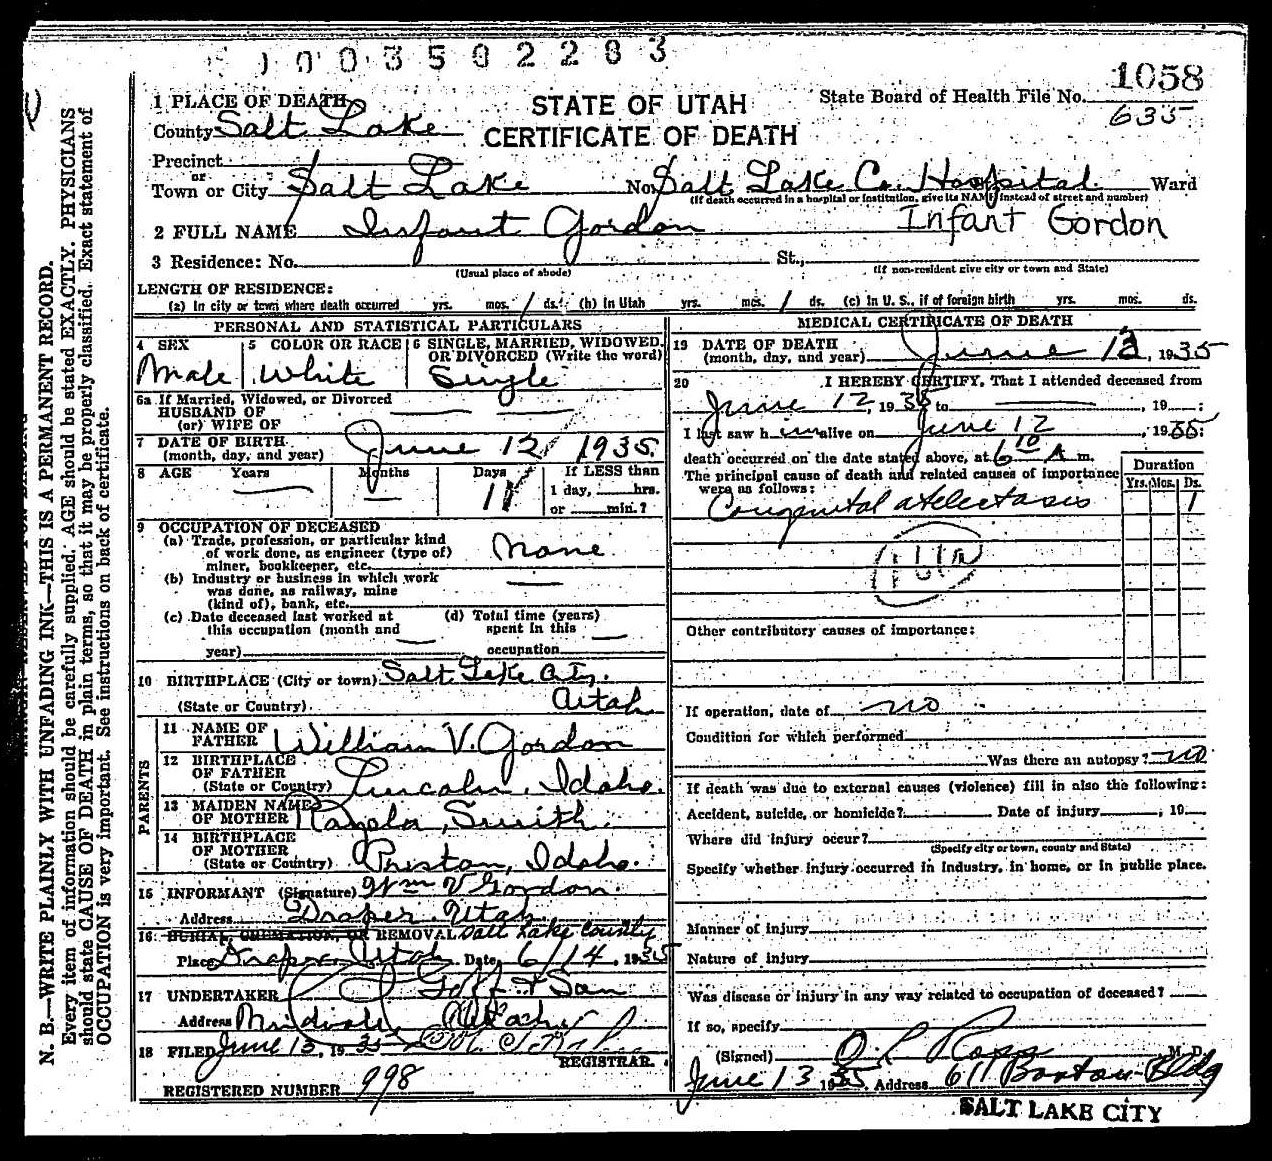 1003502203
1058
1 PLACE OF DEATH
STATE OF UTAH
State Board of Health File No.
635
County Salt Lake
CERTIFICATE OF DEATH
Precinct
or
Town or City Salt Lake No. Salt Lake Co. Hospital Ward
(If death occurred in a hospital or institution, give its NAME instead of street and number)
2 FULL NAME Infant Gordon Infant Gordon
3 Residence: No. St.,
(Usual place of abode) (If non-resident give city or town and State)
LENGTH OF RESIDENCE:
(a) In city or town where death occurred yrs. mos. 1 ds. (b) In Utah yrs. mos. 1 ds. (c) In U. S., if of foreign birth yrs. mos. ds.
PERSONAL AND STATISTICAL PARTICULARS
4 SEX 5 COLOR OR RACE 6 SINGLE, MARRIED, WIDOWED, OR DIVORCED (Write the word)
Male White Single
6a If Married, Widowed, or Divorced
HUSBAND OF
(or) WIFE OF
7 DATE OF BIRTH
(month, day, and year) June 12 1935
8 AGE Years Months Days If LESS than
1 day, hrs.
or min.?
9 OCCUPATION OF DECEASED
(a) Trade, profession, or particular kind
of work done, as engineer (type of)
miner, bookkeeper, etc. None
(b) Industry or business in which work
was done, as railway, mine
(kind of), bank, etc.
(c) Date deceased last worked at (d) Total time (years)
this occupation (month and spent in this
year) occupation
10 BIRTHPLACE (City or town) Salt Lake City.
(State or Country) Utah
PARENTS
11 NAME OF
FATHER William V. Gordon
12 BIRTHPLACE
OF FATHER
(State or Country) Lincoln, Idaho.
13 MAIDEN NAME
OF MOTHER Smith.
14 BIRTHPLACE
OF MOTHER
(State or Country) Preston, Idaho.
15 INFORMANT (Signature) Wm V Gordon.
Address Draper Utah.
16 BURIAL, CREMATION, OR REMOVAL Salt Lake County
Place Draper Utah Date 6/14, 1935
17 UNDERTAKER Goff & Son
Address Midvale Utah
18 FILED June 13, 1935
REGISTRAR.
REGISTERED NUMBER 998
MEDICAL CERTIFICATE OF DEATH
19 DATE OF DEATH
(month, day, and year) June 12, 1935
20 I HEREBY CERTIFY, That I attended deceased from
June 12, 1935 to , 19 ;
I last saw him alive on June 12, 1935;
death occurred on the date stated above, at 6 10 A m.
The principal cause of death and related causes of importance
were as follows:
Duration
Yrs. Mos. Ds.
Congenital atelectasis 1
Other contributory causes of importance:
If operation, date of no
Condition for which performed
Was there an autopsy? no
If death was due to external causes (violence) fill in also the following:
Accident, suicide, or homicide? Date of injury , 19
Where did injury occur?
(Specify city or town, county and State)
Specify whether injury occurred in industry, in home, or in public place.
Manner of injury
Nature of injury
Was disease or injury in any way related to occupation of deceased?
If so, specify
(Signed) M. D.
June 13 1935 Address 611 Boston Bldg
SALT LAKE CITY
N. B.—WRITE PLAINLY WITH UNFADING INK—THIS IS A PERMANENT RECORD.
Every item of information should be carefully supplied. AGE should be stated EXACTLY. PHYSICIANS
should state CAUSE OF DEATH in plain terms, so that it may be properly classified. Exact statement of
OCCUPATION is very important. See instructions on back of certificate.